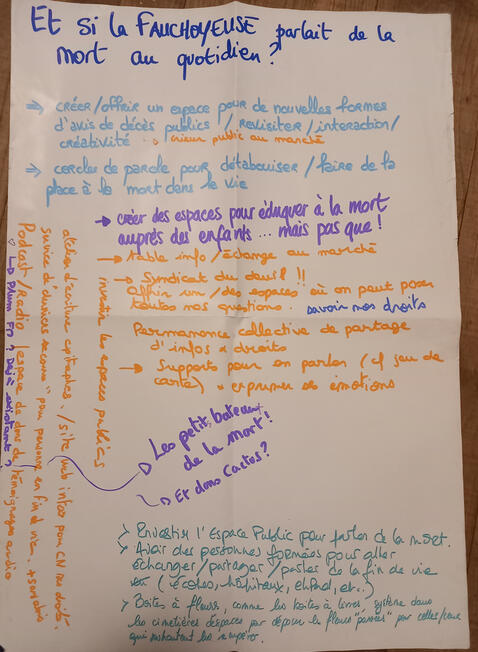 Et si la FAUCHOYEUSE parlait de la
mort au quotidien ?
⇒ CRÉER/OFFRIR UN ESPACE POUR DE NOUVELLES FORMES
D'AVIS DE DÉCÈS PUBLICS / REVISITER / INTERACTION /
CRÉATIVITÉ. → crieur public au marché
⇒ CERCLES DE PAROLE POUR DÉTABOUISER / FAIRE DE LA
PLACE À LA MORT DANS LE VIE
→ créer des espaces pour éduquer à la mort
auprès des enfants ... mais pas que !
→ table info / échange au marché
→ Syndicat du deuil !!
Offrir un / des espaces où on peut poser
toutes nos questions. savoir nos droits
Permanence collective de partage
d'infos & droits
→ Supports pour en parler (cf jeu de
carte) & exprimer ses émotions
investir les espaces publics
atelier d'écriture épitaphes. / site web infos pour nos droits.
service de "derniers secours" pour personne en fin de vie.
Podcast / Radio / espace de dons de témoignages audio
↳ Plum FM ? Déjà existant ?
→ Les petits battements
de la mort !
→ Et dons Cactus ?
> Investir l'Espace Public pour parler de la mort.
> Avoir des personnes formées pour aller
échanger / partager / parler de la fin de vie
(écoles, hôpitaux, ehpad, etc..)
> Boites à fleurs, comme les boites à livres, système dans
les cimetières d'espaces par déposer les fleurs "passées" pour celles/ceux
qui souhaitent les récupérer.